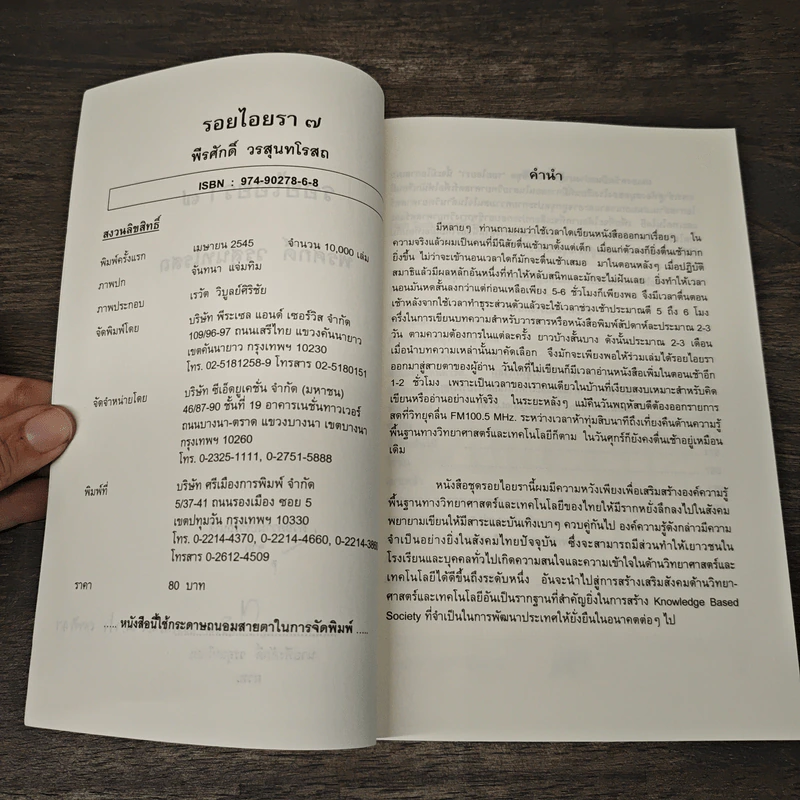 รอยไอยรา ๗
พีรศักดิ์ วรสุนทโรสถ
ISBN : 974-90278-6-8
สงวนลิขสิทธิ์
พิมพ์ครั้งแรก เมษายน 2545 จำนวน 10,000 เล่ม
ภาพปก จันทนา แจ่มทิม
ภาพประกอบ เรวัต วิบูลย์ศิริชัย
จัดพิมพ์โดย บริษัท พีระเซล แอนด์ เซอร์วิส จำกัด
109/96-97 ถนนเสรีไทย แขวงคันนายาว
เขตคันนายาว กรุงเทพฯ 10230
โทร. 02-5181258-9 โทรสาร 02-5180151
จัดจำหน่ายโดย บริษัท ซีเอ็ดยูเคชั่น จำกัด (มหาชน)
46/87-90 ชั้นที่ 19 อาคารเนชั่นทาวเวอร์
ถนนบางนา-ตราด แขวงบางนา เขตบางนา
กรุงเทพฯ 10260
โทร. 0-2325-1111, 0-2751-5888
พิมพ์ที่ บริษัท ศรีเมืองการพิมพ์ จำกัด
5/37-41 ถนนรองเมือง ซอย 5
เขตปทุมวัน กรุงเทพฯ 10330
โทร. 0-2214-4370, 0-2214-4660, 0-2214-3860
โทรสาร 0-2612-4509
ราคา 80 บาท
..... หนังสือนี้ใช้กระดาษถนอมสายตาในการจัดพิมพ์ .....
คำนำ
มีหลายๆ ท่านถามผมว่าใช้เวลาใดเขียนหนังสือออกมาเรื่อยๆ ใน
ความจริงแล้วผมเป็นคนที่มีนิสัยตื่นเช้ามาตั้งแต่เด็ก เมื่อแก่ตัวลงก็ยิ่งตื่นเช้ามาก
ยิ่งขึ้น ไม่ว่าจะเข้านอนเวลาใดก็มักจะตื่นเช้าเสมอ มาในตอนหลังๆ เมื่อปฏิบัติ
สมาธิแล้วมีผลหลักอันหนึ่งที่ทำให้หลับสนิทและมักจะไม่ฝันเลย ยิ่งทำให้เวลา
นอนมันหดสั้นลงกว่าแต่ก่อนเหลือเพียง 5-6 ชั่วโมงก็เพียงพอ จึงมีเวลาตื่นตอน
เช้าหลังจากใช้เวลาทำธุระส่วนตัวแล้วจะใช้เวลาช่วงเช้าประมาณตี 5 ถึง 6 โมง
ครึ่งในการเขียนบทความสำหรับวารสารหรือหนังสือพิมพ์สัปดาห์ละประมาณ 2-3
วัน ตามความต้องการในแต่ละครั้ง ยาวบ้างสั้นบาง ดังนั้นประมาณ 2-3 เดือน
เมื่อนำบทความเหล่านั้นมาคัดเลือก จึงมักจะเพียงพอให้รวมเล่มได้รอยไอยรา
ออกมาสู่สายตาของผู้อ่าน วันใดที่ไม่เขียนก็มีเวลาอ่านหนังสือเพิ่มในตอนเช้าอีก
1-2 ชั่วโมง เพราะเป็นเวลาของเราคนเดียวในบ้านที่เงียบสงบเหมาะสำหรับคิด
เขียนหรืออ่านอย่างแท้จริง ในระยะหลังๆ แม้คืนวันพฤหัสบดีต้องออกรายการ
สดที่วิทยุคลื่น FM100.5 MHz. ระหว่างเวลาห้าทุ่มสิบนาทีถึงเที่ยงคืนด้านความรู้
พื้นฐานทางวิทยาศาสตร์และเทคโนโลยีก็ตาม ในวันศุกร์ก็ยังคงตื่นเช้าอยู่เหมือน
เดิม
หนังสือชุดรอยไอยรานี้ผมมีความหวังเพียงเพื่อเสริมสร้างองค์ความรู้
พื้นฐานทางวิทยาศาสตร์และเทคโนโลยีของไทยให้มีรากหยั่งลึกลงไปในสังคม
พยายามเขียนให้มีสาระและบันเทิงเบาๆ ควบคู่กันไป องค์ความรู้ดังกล่าวมีความ
จำเป็นอย่างยิ่งในสังคมไทยปัจจุบัน ซึ่งจะสามารถมีส่วนทำให้เยาวชนใน
โรงเรียนและบุคคลทั่วไปเกิดความสนใจและความเข้าใจในด้านวิทยาศาสตร์และ
เทคโนโลยีได้ดีขึ้นถึงระดับหนึ่ง อันจะนำไปสู่การสร้างเสริมสังคมด้านวิทยา-
ศาสตร์และเทคโนโลยีอันเป็นรากฐานที่สำคัญยิ่งในการสร้าง Knowledge Based
Society ที่จำเป็นในการพัฒนาประเทศให้ยั่งยืนในอนาคตต่อๆ ไป